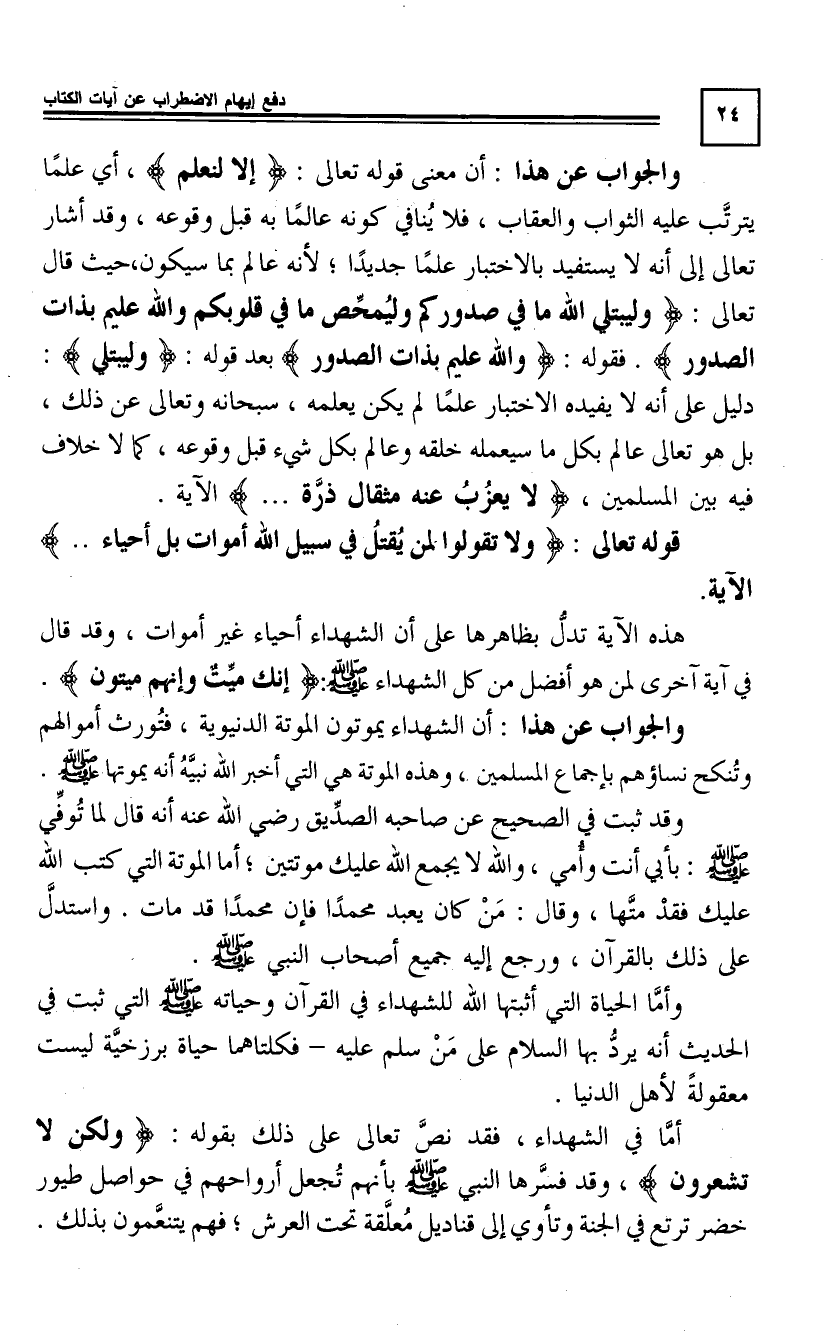 ٢٤
دفع إيهام الاضطراب عن آيات الكتاب
والجواب عن هذا : أن معنى قوله تعالى : ﴿ إلا لنعلم ﴾ ، أي علمًا
يترتَّب عليه الثواب والعقاب ، فلا يُنافي كونه عالمًا به قبل وقوعه ، وقد أشار
تعالى إلى أنه لا يستفيد بالاختبار علمًا جديدًا ؛ لأنه عالم بما سيكون،حيث قال
تعالى : ﴿ وليبتلي الله ما في صدوركم وليُمحِّص ما في قلوبكم والله عليم بذات
الصدور ﴾ . فقوله : ﴿ والله عليم بذات الصدور ﴾ بعد قوله : ﴿ وليبتلي ﴾ :
دليل على أنه لا يفيده الاختبار علمًا لم يكن يعلمه ، سبحانه وتعالى عن ذلك ،
بل هو تعالى عالم بكل ما سيعمله خلقه وعالم بكل شيء قبل وقوعه ، كما لا خلاف
فيه بين المسلمين ، ﴿ لا يعزُبُ عنه مثقال ذرَّة ... ﴾ الآية .
قوله تعالى : ﴿ ولا تقولوا لمن يُقتلُ في سبيل الله أموات بل أحياء .. ﴾
الآية.
هذه الآية تدلُّ بظاهرها على أن الشهداء أحياء غير أموات ، وقد قال
في آية آخرى لمن هو أفضل من كل الشهداء ﷺ:﴿ إنك ميِّتٌ وإنهم ميتون ﴾ .
والجواب عن هذا : أن الشهداء يموتون الموتة الدنيوية ، فتُورث أموالهم
وتُنكح نساؤهم بإجماع المسلمين ، وهذه الموتة هي التي أخبر الله نبيَّهُ أنه يموتها ﷺ .
وقد ثبت في الصحيح عن صاحبه الصدِّيق رضي الله عنه أنه قال لما تُوفِّي
ﷺ : بأبي أنت وأُمي ، والله لا يجمع الله عليك موتتين ؛ أما الموتة التي كتب الله
عليك فقدْ متَّها ، وقال : مَنْ كان يعبد محمدًا فإن محمدًا قد مات . واستدلَّ
على ذلك بالقرآن ، ورجع إليه جميع أصحاب النبي ﷺ .
وأمَّا الحياة التي أثبتها الله للشهداء في القرآن وحياته ﷺ التي ثبت في
الحديث أنه يردُّ بها السلام على مَنْ سلم عليه – فكلتاهما حياة برزخيَّة ليست
معقولةً لأهل الدنيا .
أمَّا في الشهداء ، فقد نصَّ تعالى على ذلك بقوله : ﴿ ولكن لا
تشعرون ﴾ ، وقد فسَّرها النبي ﷺ بأنهم تُجعل أرواحهم في حواصل طيور
خضر ترتع في الجنة وتأوي إلى قناديل مُعلَّقة تحت العرش ؛ فهم يتنعَّمون بذلك .